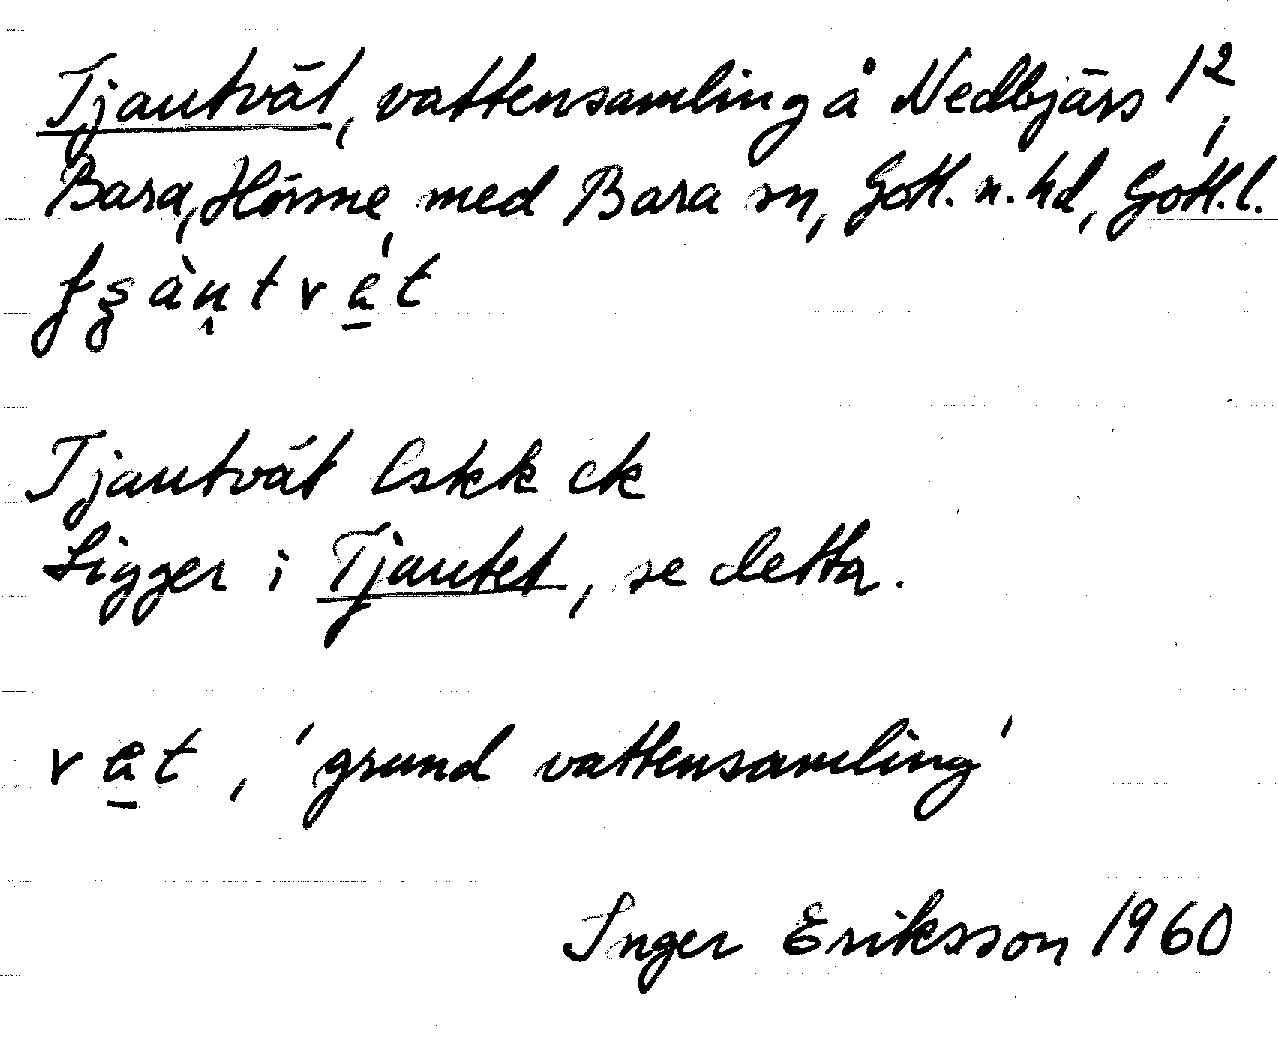 Tjautvät, vattensamling å Nedbjärs 1²,
Bara, Hörsne med Bara sn, Gotl. n. hd, Gotl. l.
Tjautvät Estkk ek
Ligger i Tjautet, se detta.
v a̱ t , 'grund vattensamling'
Inger Eriksson 1960